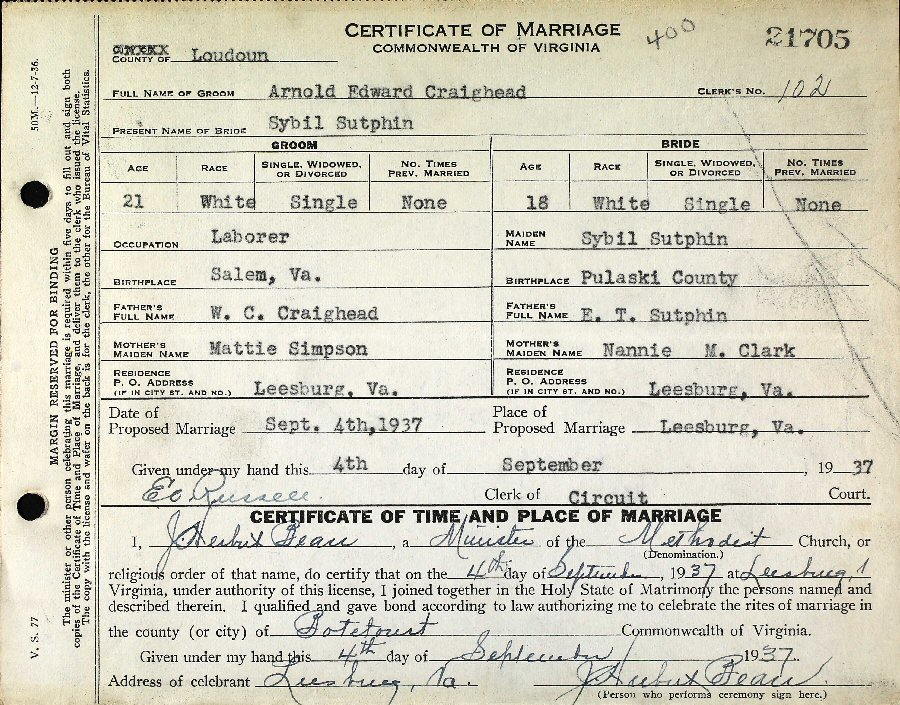 CERTIFICATE OF MARRIAGE
COMMONWEALTH OF VIRGINIA
400
21705
COUNTY OF Loudoun
FULL NAME OF GROOM Arnold Edward Craighead CLERK'S NO. 102
PRESENT NAME OF BRIDE Sybil Sutphin
GROOM BRIDE
AGE RACE SINGLE, WIDOWED, OR DIVORCED NO. TIMES PREV. MARRIED AGE RACE SINGLE, WIDOWED, OR DIVORCED NO. TIMES PREV. MARRIED
21 White Single None 18 White Single None
OCCUPATION Laborer MAIDEN NAME Sybil Sutphin
BIRTHPLACE Salem, Va. BIRTHPLACE Pulaski County
FATHER'S FULL NAME W. C. Craighead FATHER'S FULL NAME E. T. Sutphin
MOTHER'S MAIDEN NAME Mattie Simpson MOTHER'S MAIDEN NAME Nannie M. Clark
RESIDENCE P. O. ADDRESS (IF IN CITY ST. AND NO.) Leesburg, Va. RESIDENCE P. O. ADDRESS (IF IN CITY ST. AND NO.) Leesburg, Va.
Date of Proposed Marriage Sept. 4th,1937 Place of Proposed Marriage Leesburg, Va.
Given under my hand this 4th day of September, 1937
EO Russell Clerk of Circuit Court.
CERTIFICATE OF TIME AND PLACE OF MARRIAGE
I, J. Herbert Bean, a Minister of the Methodist Church, or
(Denomination.)
religious order of that name, do certify that on the 4th day of September, 1937 at Leesburg,
Virginia, under authority of this license, I joined together in the Holy State of Matrimony the persons named and
described therein. I qualified and gave bond according to law authorizing me to celebrate the rites of marriage in
the county (or city) of Botetourt Commonwealth of Virginia.
Given under my hand this 4th day of September 1937.
Address of celebrant Leesburg, Va. J. Herbert Bean
(Person who performs ceremony sign here.)
V. S. 77 50M.—12-7-36.
MARGIN RESERVED FOR BINDING
The minister or other person celebrating this marriage is required within five days to fill out and sign both
copies of the Certificate of Time and Place of Marriage, and deliver them to the clerk who issued the license.
The copy with the license and wafer on the back is for the clerk, the other for the Bureau of Vital Statistics.